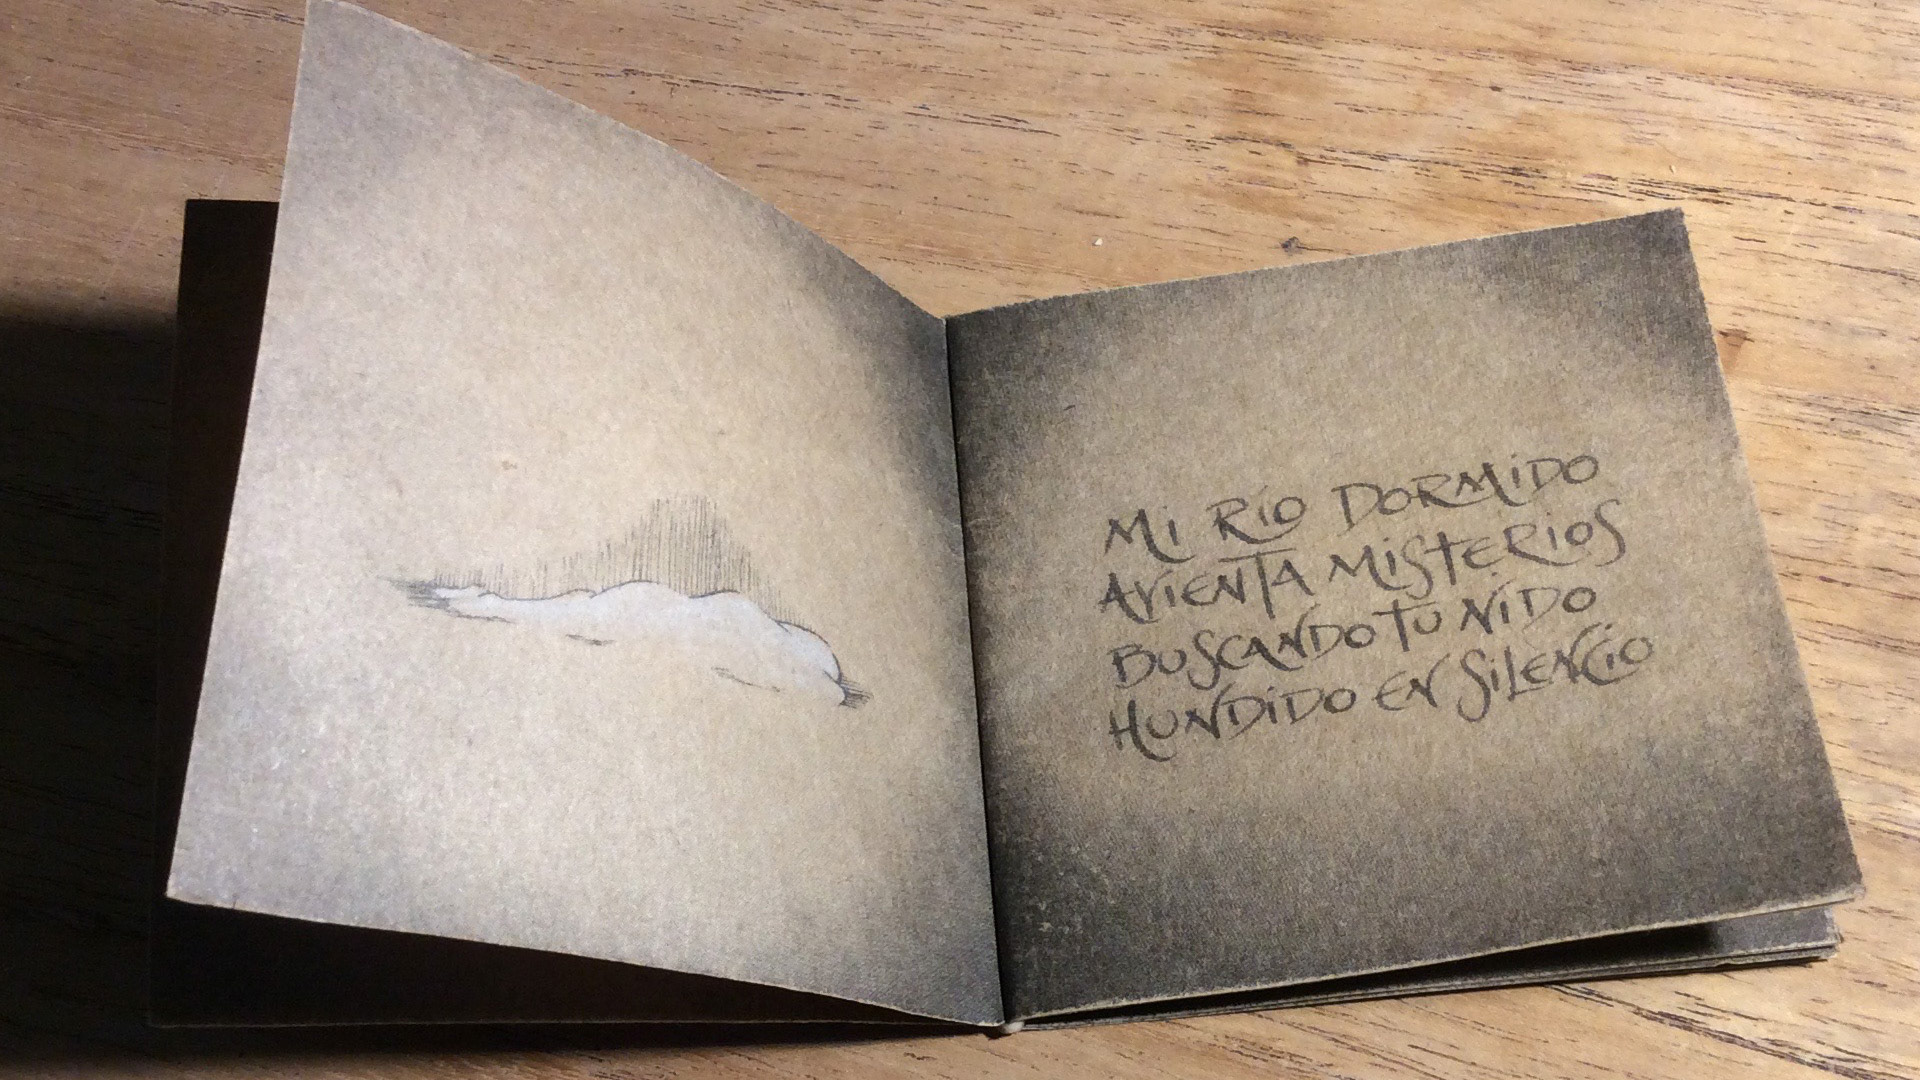 Mi Río DORMiDO
AVIENTA MiSTERiOS
BUSCANDO TU NiDO
HUNDiDO EN SiLENCiO